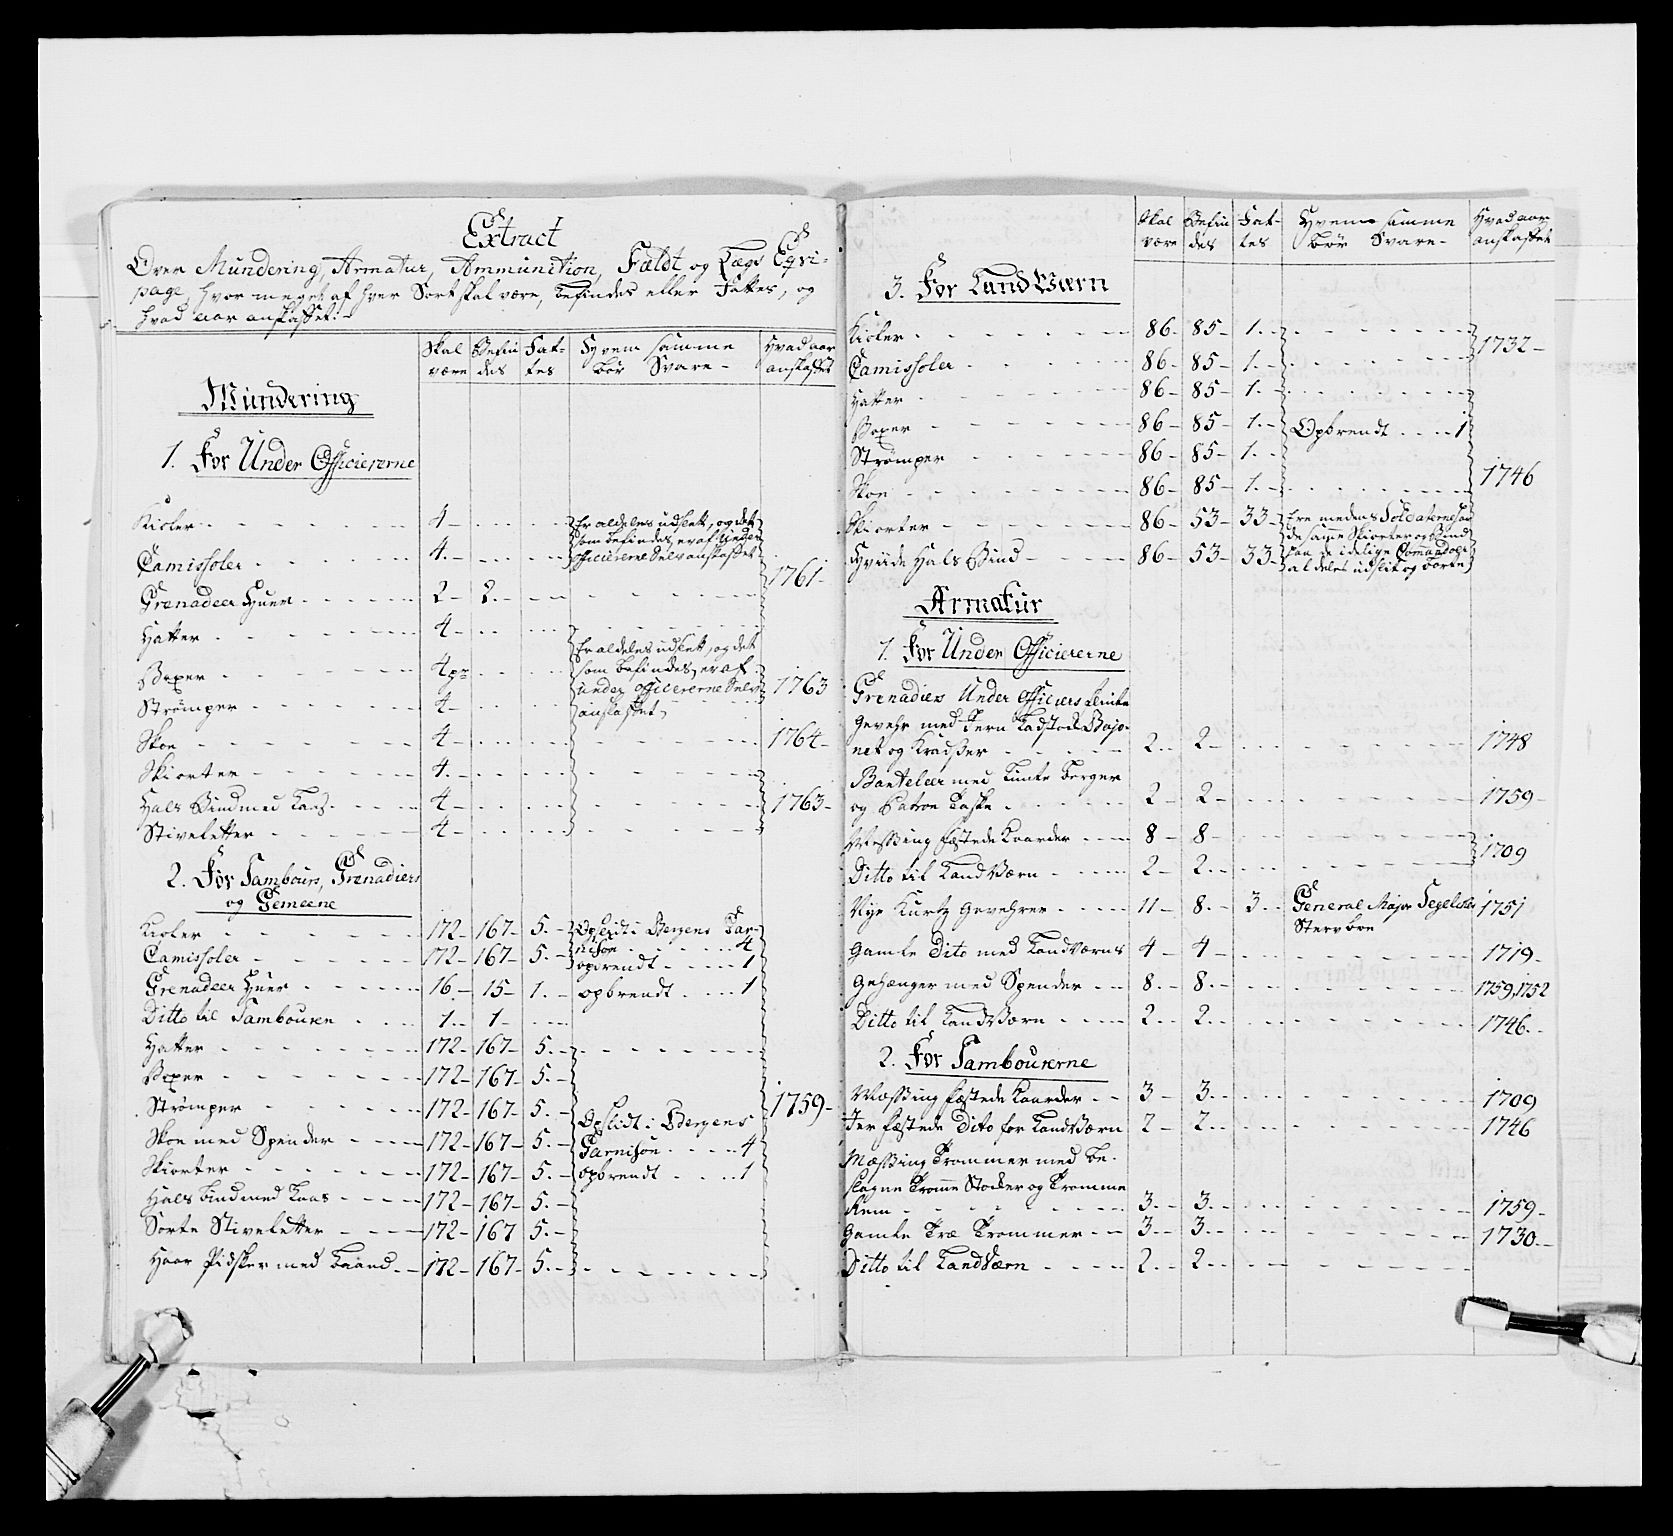 Extract
Over Mundering, Armatur, Ammunition, Fældt og Lægs Eqvi-
page, hvor meget af hver Sort skal være, befindes eller fattes, og
hvad aar anskaffet.
Skal være | Befindes | Fattes | Hvem samme bör Svare | Hvad aar anskaffet
Mundering
1. For Under Officiererne
Kioler 4
Er aldeles udslett, og det
som befindes, er af Under
officiererne Selv anskaffet
Camissoler 4
Grenadeer Huer 2 2
1761
Hatter 4
Er aldeles udslett, og det
som befindes, er af
under officererne Selv
anskaffet
Boxer 4 pr
Strømper 4
1763
Skoe 4
1764
Skiorter 4
Hals Bind med Laas 4
1763
Stiveletter 4
2. For Tambours, Grenadiers
og Gemeene
Kioler 172 167 5
Opslidt i Bergens Gar-
nison 4
Camissoler 172 167 5
opbrendt 1
Grenadeer Huer 16 15 1 opbrendt 1
Ditto til Tambouren 1 1
Hatter 172 167 5
Boxer 172 167 5
Strømper 172 167 5
1759
Opslidt i Bergens
Skoe med Spender 172 167 5 Garnison 4
Skiorter 172 167 5 opbrendt 1
Hals bind med Laas 172 167 5
Sorte Stiveletter 172 167 5
Haar Pidsker med Baand 172 167 5
Skal være | Befindes | Fattes | Hvem samme bör Svare | Hvad aar anskaffet
3. For Land Værn
Kioler 86 85 1
1732
Camissoler 86 85 1
Hatter 86 85 1
Boxer 86 85 1 Opbrendt 1
Strømper 86 85 1
Skoe 86 85 1
1746
Skiorter 86 53 33
Ere medens Soldaterne
de samme Skiorter og Bind
paa de idelige Commandoer
aldeles udslit og borte
Hviide Hals Bind 86 53 33
Armatur
1. For Under Officiererne
Grenadiers Under Officiers Flinte
Gevehr med Jern Ladstok Bajo-
net og Kradser 2 2 1748
Banteleer med Lunte Berger
og Patron Taske 2 2 1759
Messing fæstede Kaarder 8 8
1709
Ditto til Land Værn 2 2
Nye Kurtz Gevehrer 11 8 3 General Major Segelcke 1751
Sterv boe
Gamle Dito med Land Værns 4 4 1719
Gehænger med Spender 8 8 1759, 1752
Ditto til Land Værn 2 2 1746
2. For Tambourerne
Messing fæstede Kaarder 3 3 1709
Jer fæstede Dito for Land Værn 2 2 1746
Messing Trommer med be-
slagne Tromme Stokker og Tromme
Rem 3 3 1759
Gamle Træ Trommer 3 3 1730
Ditto til Land Værn 2 2